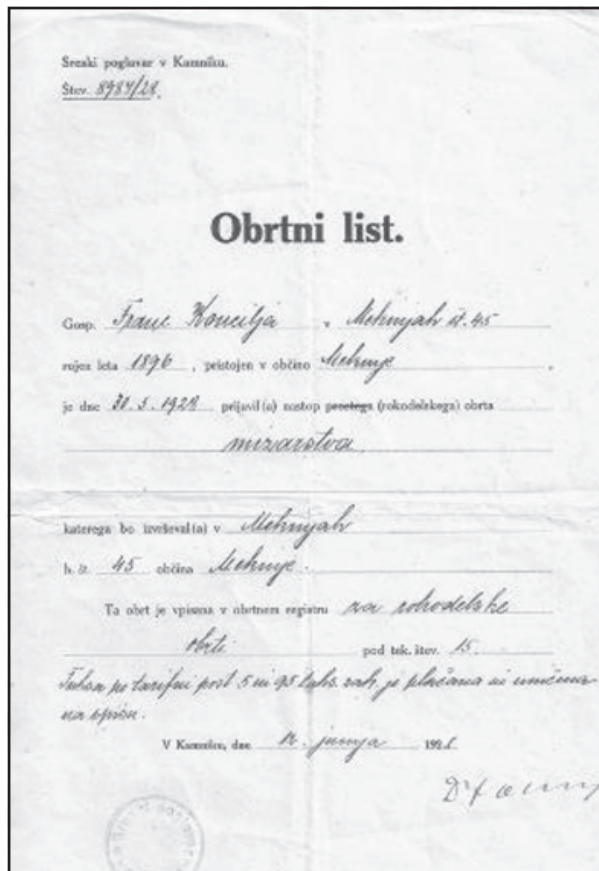 Sreski poglavar v Kamniku.
Štev. 8984/28
Obrtni list.
Gosp. Franc Koncilja v Mekinjah št. 45
rojen leta 1896, pristojen v občino Mekinje,
je dne 30.5.1928 prijavil(a) nastop prostega (rokodelskega) obrta
mizarstva,
katerega bo izvrševal(a) v Mekinjah
h. št. 45 občina Mekinje.
Ta obrt je vpisana v obrtnem registru za rokodelske
obrti pod tek. štev. 15.
Taksa po tarifni post. 5 in 95 taks. zak. je plačana in uničena
na spisu.
V Kamniku, dne junija 1928